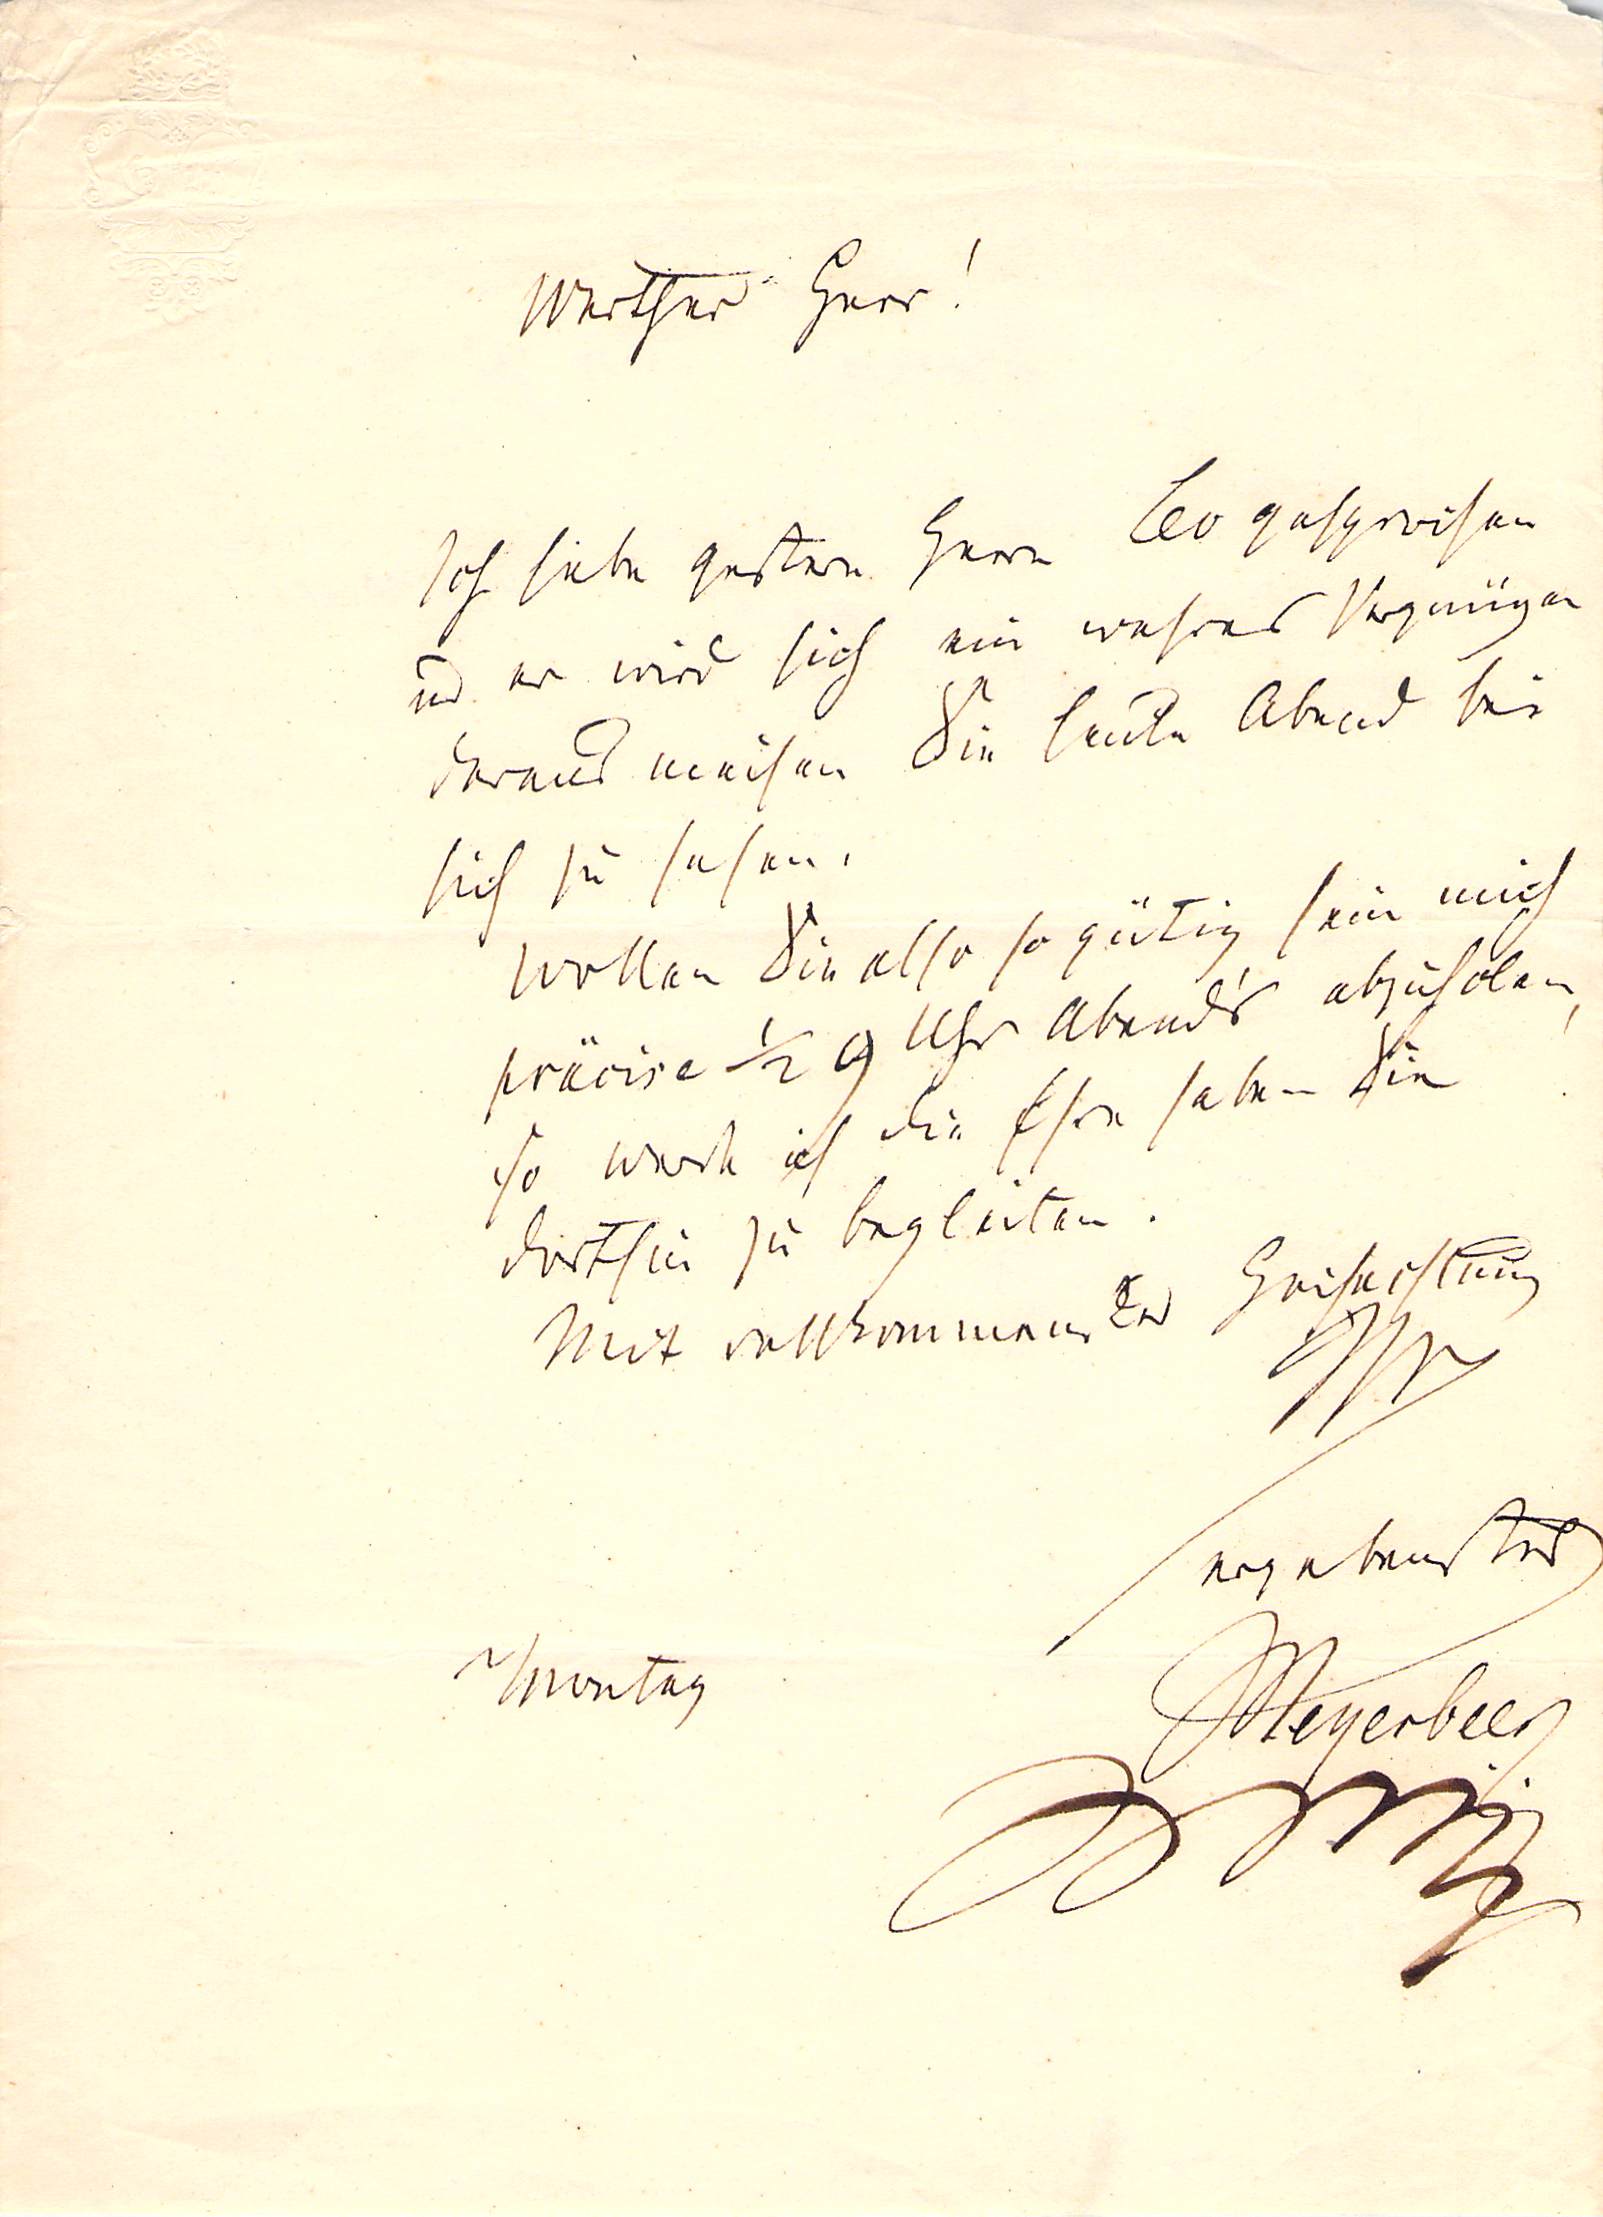 Werther Herr!
Ich habe gestern Herrn Leo gesprochen
und er wird sich ein wahres Vergnügen
daraus machen Sie heute Abend bei
sich zu sehen.
Wollen Sie also so gütig sein mich
präcise ½ 9 Uhr Abends abzuholen,
so werde ich die Ehre haben Sie
dorthin zu begleiten.
Mit vollkommenster Hochachtung
Ihr
ergebenster
Montag
Meyerbeer